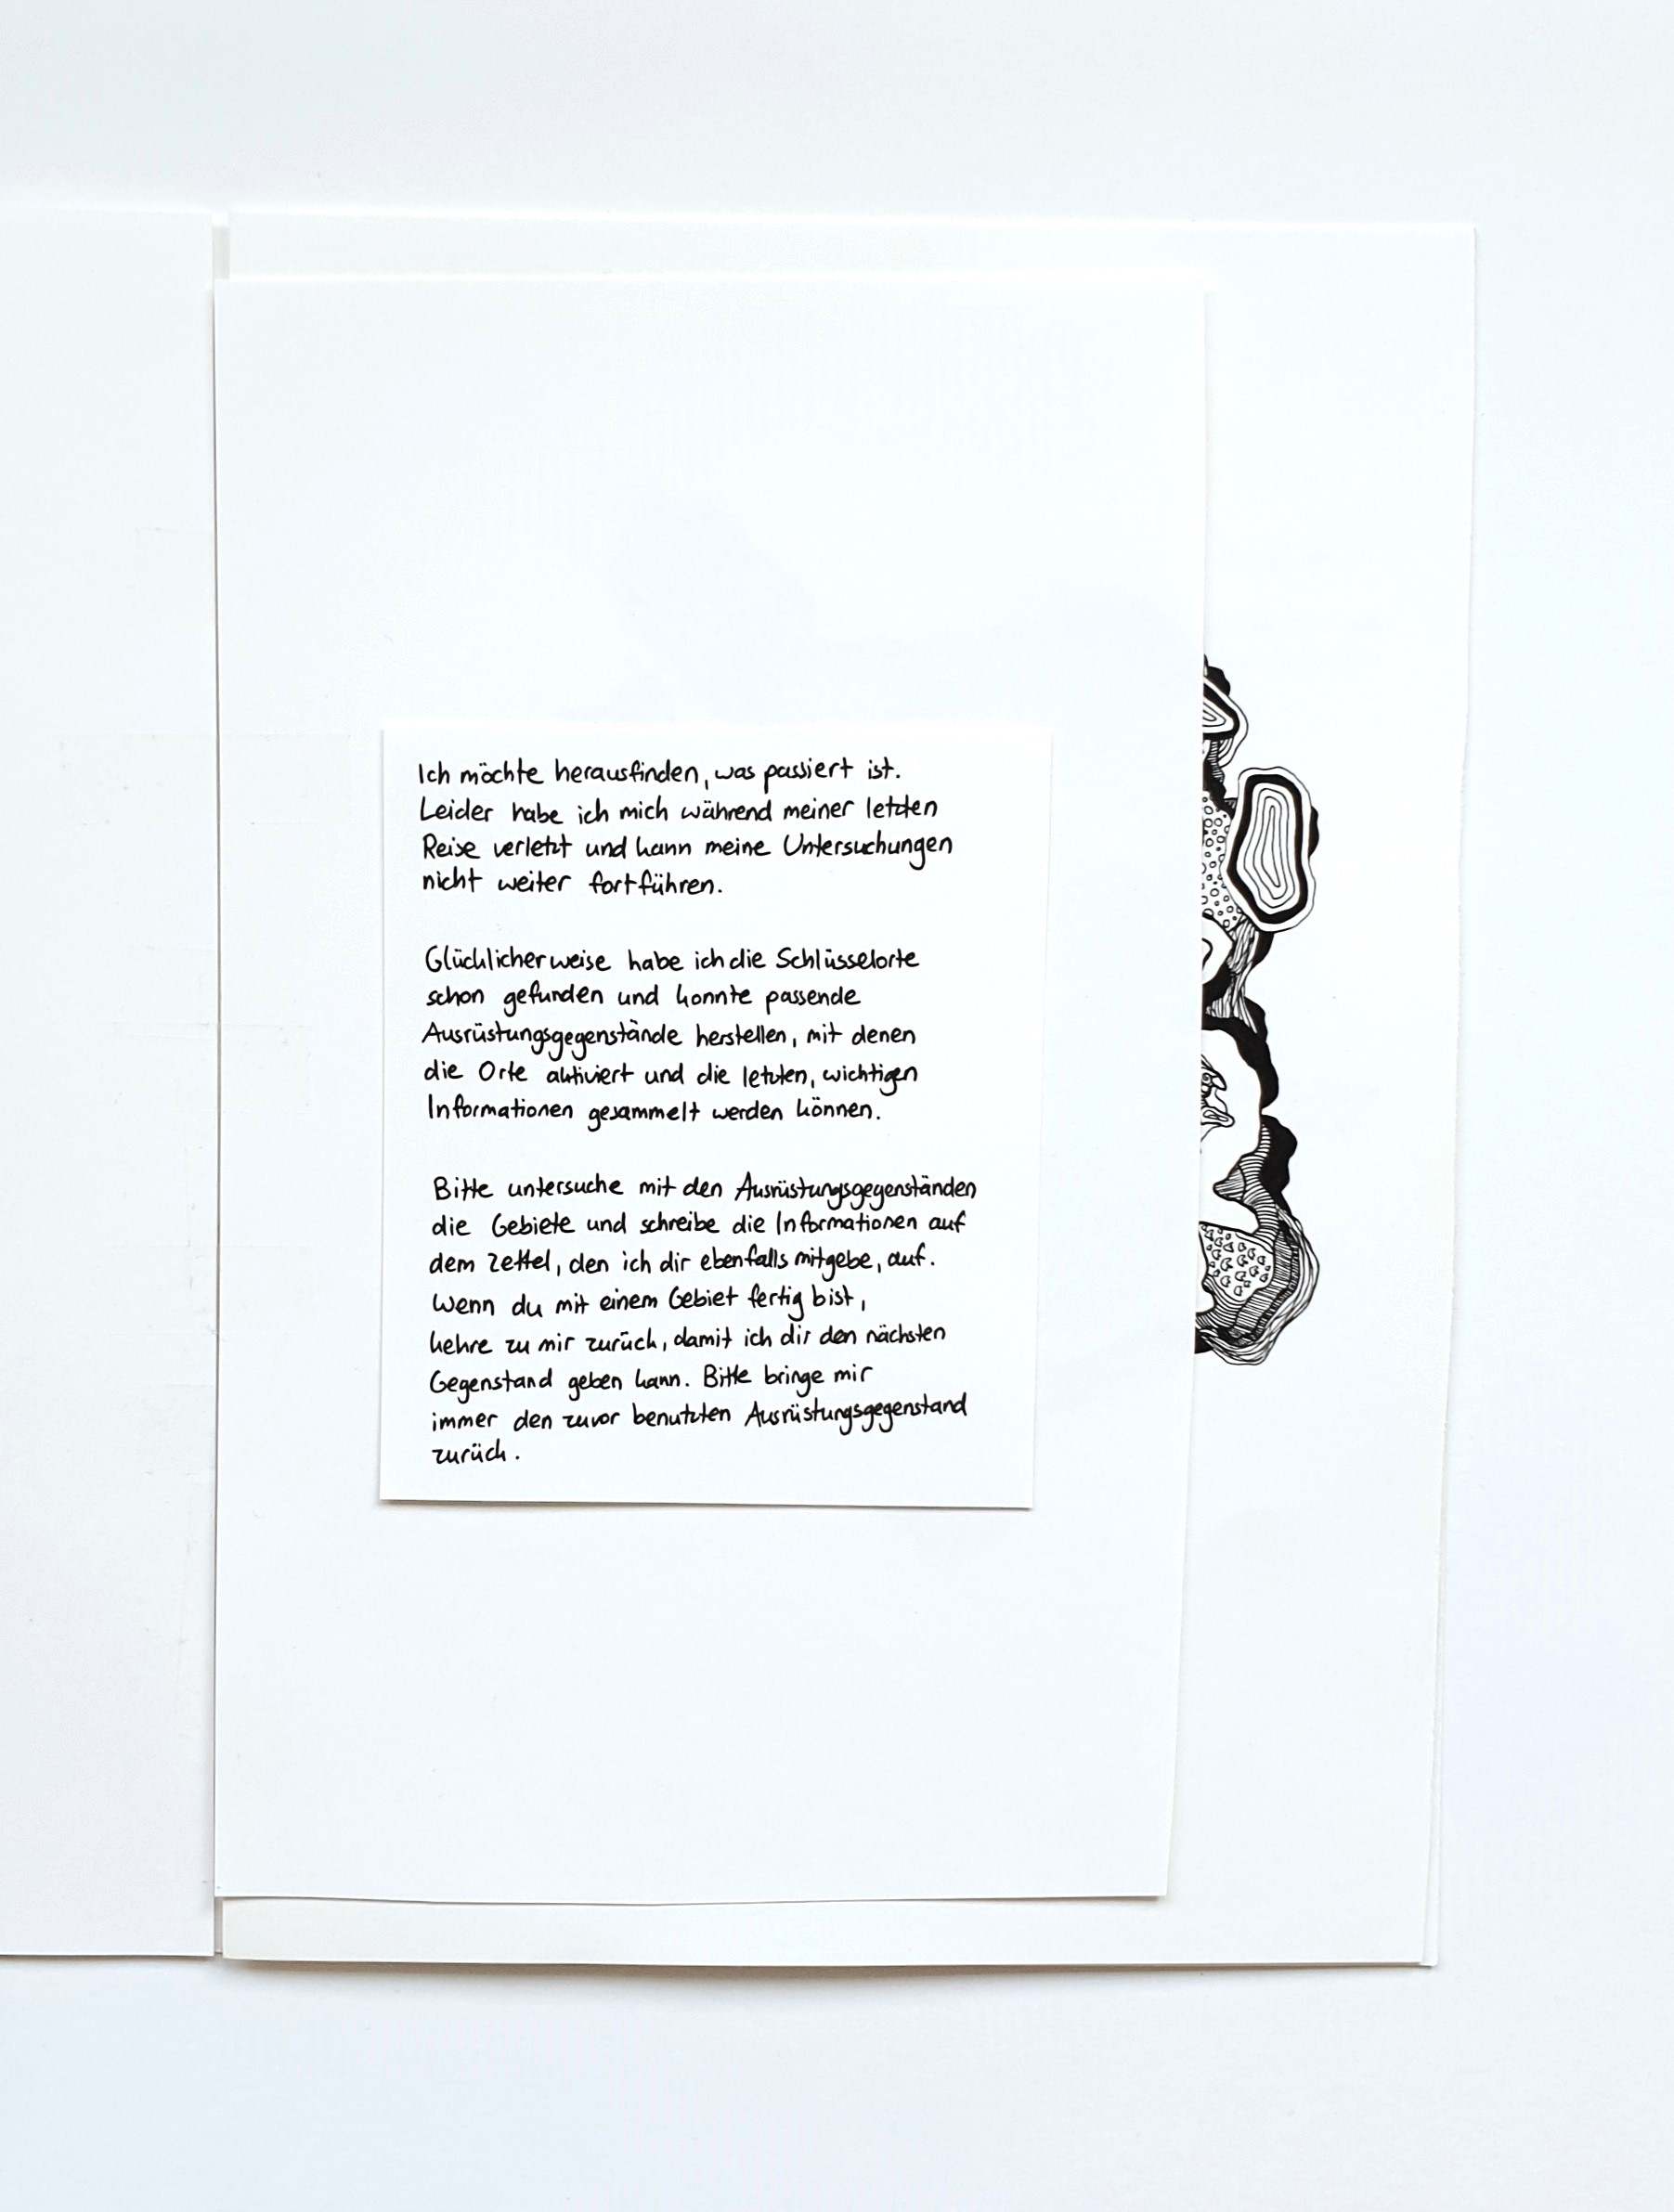 Ich möchte herausfinden, was passiert ist.
Leider habe ich mich während meiner letzten
Reise verletzt und kann meine Untersuchungen
nicht weiter fortführen.
Glücklicherweise habe ich die Schlüsselorte
schon gefunden und konnte passende
Ausrüstungsgegenstände herstellen, mit denen
die Orte aktiviert und die letzten, wichtigen
Informationen gesammelt werden können.
Bitte untersuche mit den Ausrüstungsgegenständen
die Gebiete und schreibe die Informationen auf
dem Zettel, den ich dir ebenfalls mitgebe, auf.
Wenn du mit einem Gebiet fertig bist,
kehre zu mir zurück, damit ich dir den nächsten
Gegenstand geben kann. Bitte bringe mir
immer den zuvor benutzten Ausrüstungsgegenstand
zurück.